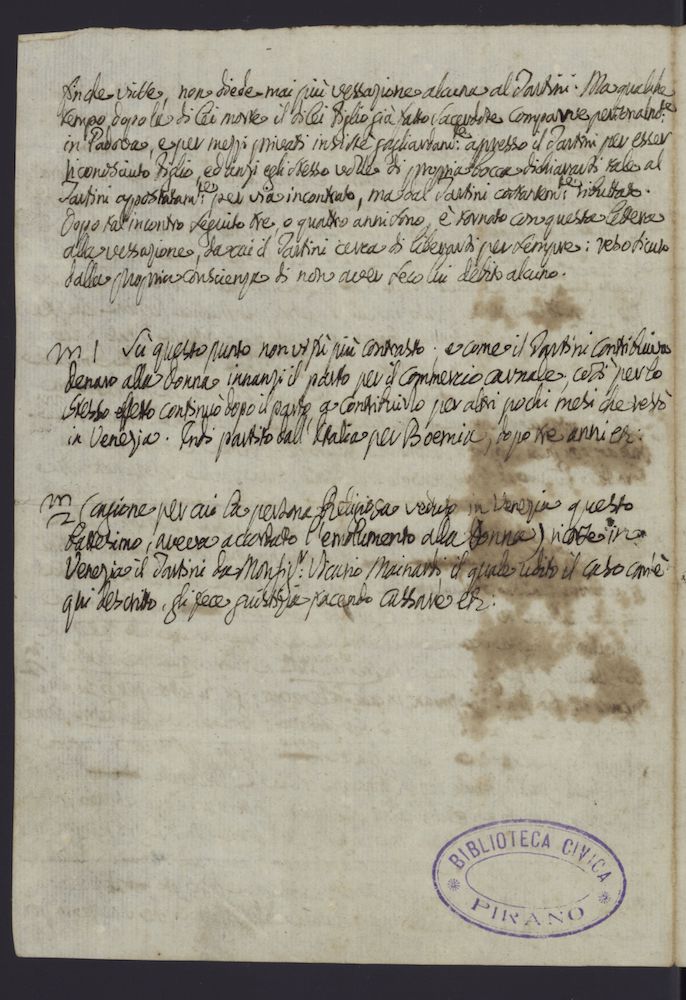 finche visse, non diede mai più vessazione alcuna al Tartini. Ma qualche
tempo dopo la di lei morte il di lei figlio già fatto Sacerdote comparve
in Padova, e per mezzi privati insistè gagliardam:te appresso il Tartini per esser
riconosciuto figlio, ed anzi egli stesso volle di propria bocca dichiararsi tale al
Tartini appostatam:te per via incontrato, ma dal Tartini ributtato.
Dopo tal incontro seguito tre, o quattro anni sono, è tornato con questa lettera
alla vessazione, da cui il Tartini cerca di liberarsi per sempre: reso sicuro
dalla propria conscienza di non aver seco lui debito alcuno.
m/1 Sù questo punto non vi fù più contrasto; e come il Tartini contribuiva
denaro alla donna innanzi il parto per il commercio carnale, così per lo
stesso effetto continuò dopo il parto a contribuirlo per altri pochi mesi che restò
in Venezia. Indi partito dall'Italia per Boemia, dopo tre anni etc:
m/2 (cagione per cui la persona Religiosa veduto in Venezia questo
battesimo, aveva accordato l'emolumento alla donna) ricorse in
Venezia il Tartini da Monsig:r Vicario Mainardi, il quale udito il caso com'è
qui descritto, gli fece giustizia facendo cassare etc:
BIBLIOTECA CIVICA
PIRANO